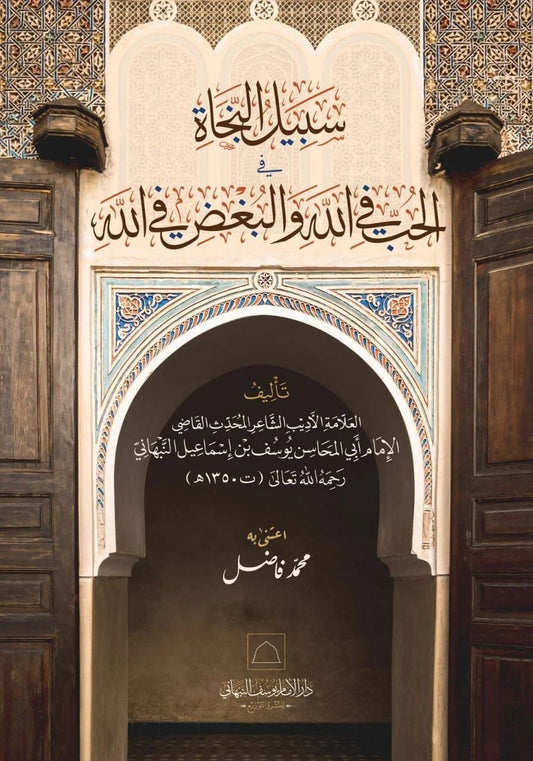 سَبِيلُ النَّجَاةِ
فِي
الحُبِّ فِي اللهِ وَالبُغْضِ فِي اللهِ
تَأْلِيفُ
العَلَّامَةِ الأَدِيبِ الشَّاعِرِ المُحَدِّثِ القَاضِي
الإِمَامِ أَبِي المَحَاسِنِ يُوسُفَ بْنِ إِسْمَاعِيلَ النَّبْهَانِيِّ
رَحِمَهُ اللهُ تَعَالَى (ت ١٣٥٠هـ)
اعْتَنَى بِهِ
مُحَمَّد فَاضِل
دَارُ الإِمَامِ يُوسُفَ النَّبْهَانِي
لِلنَّشْرِ وَالتَّوْزِيعِ